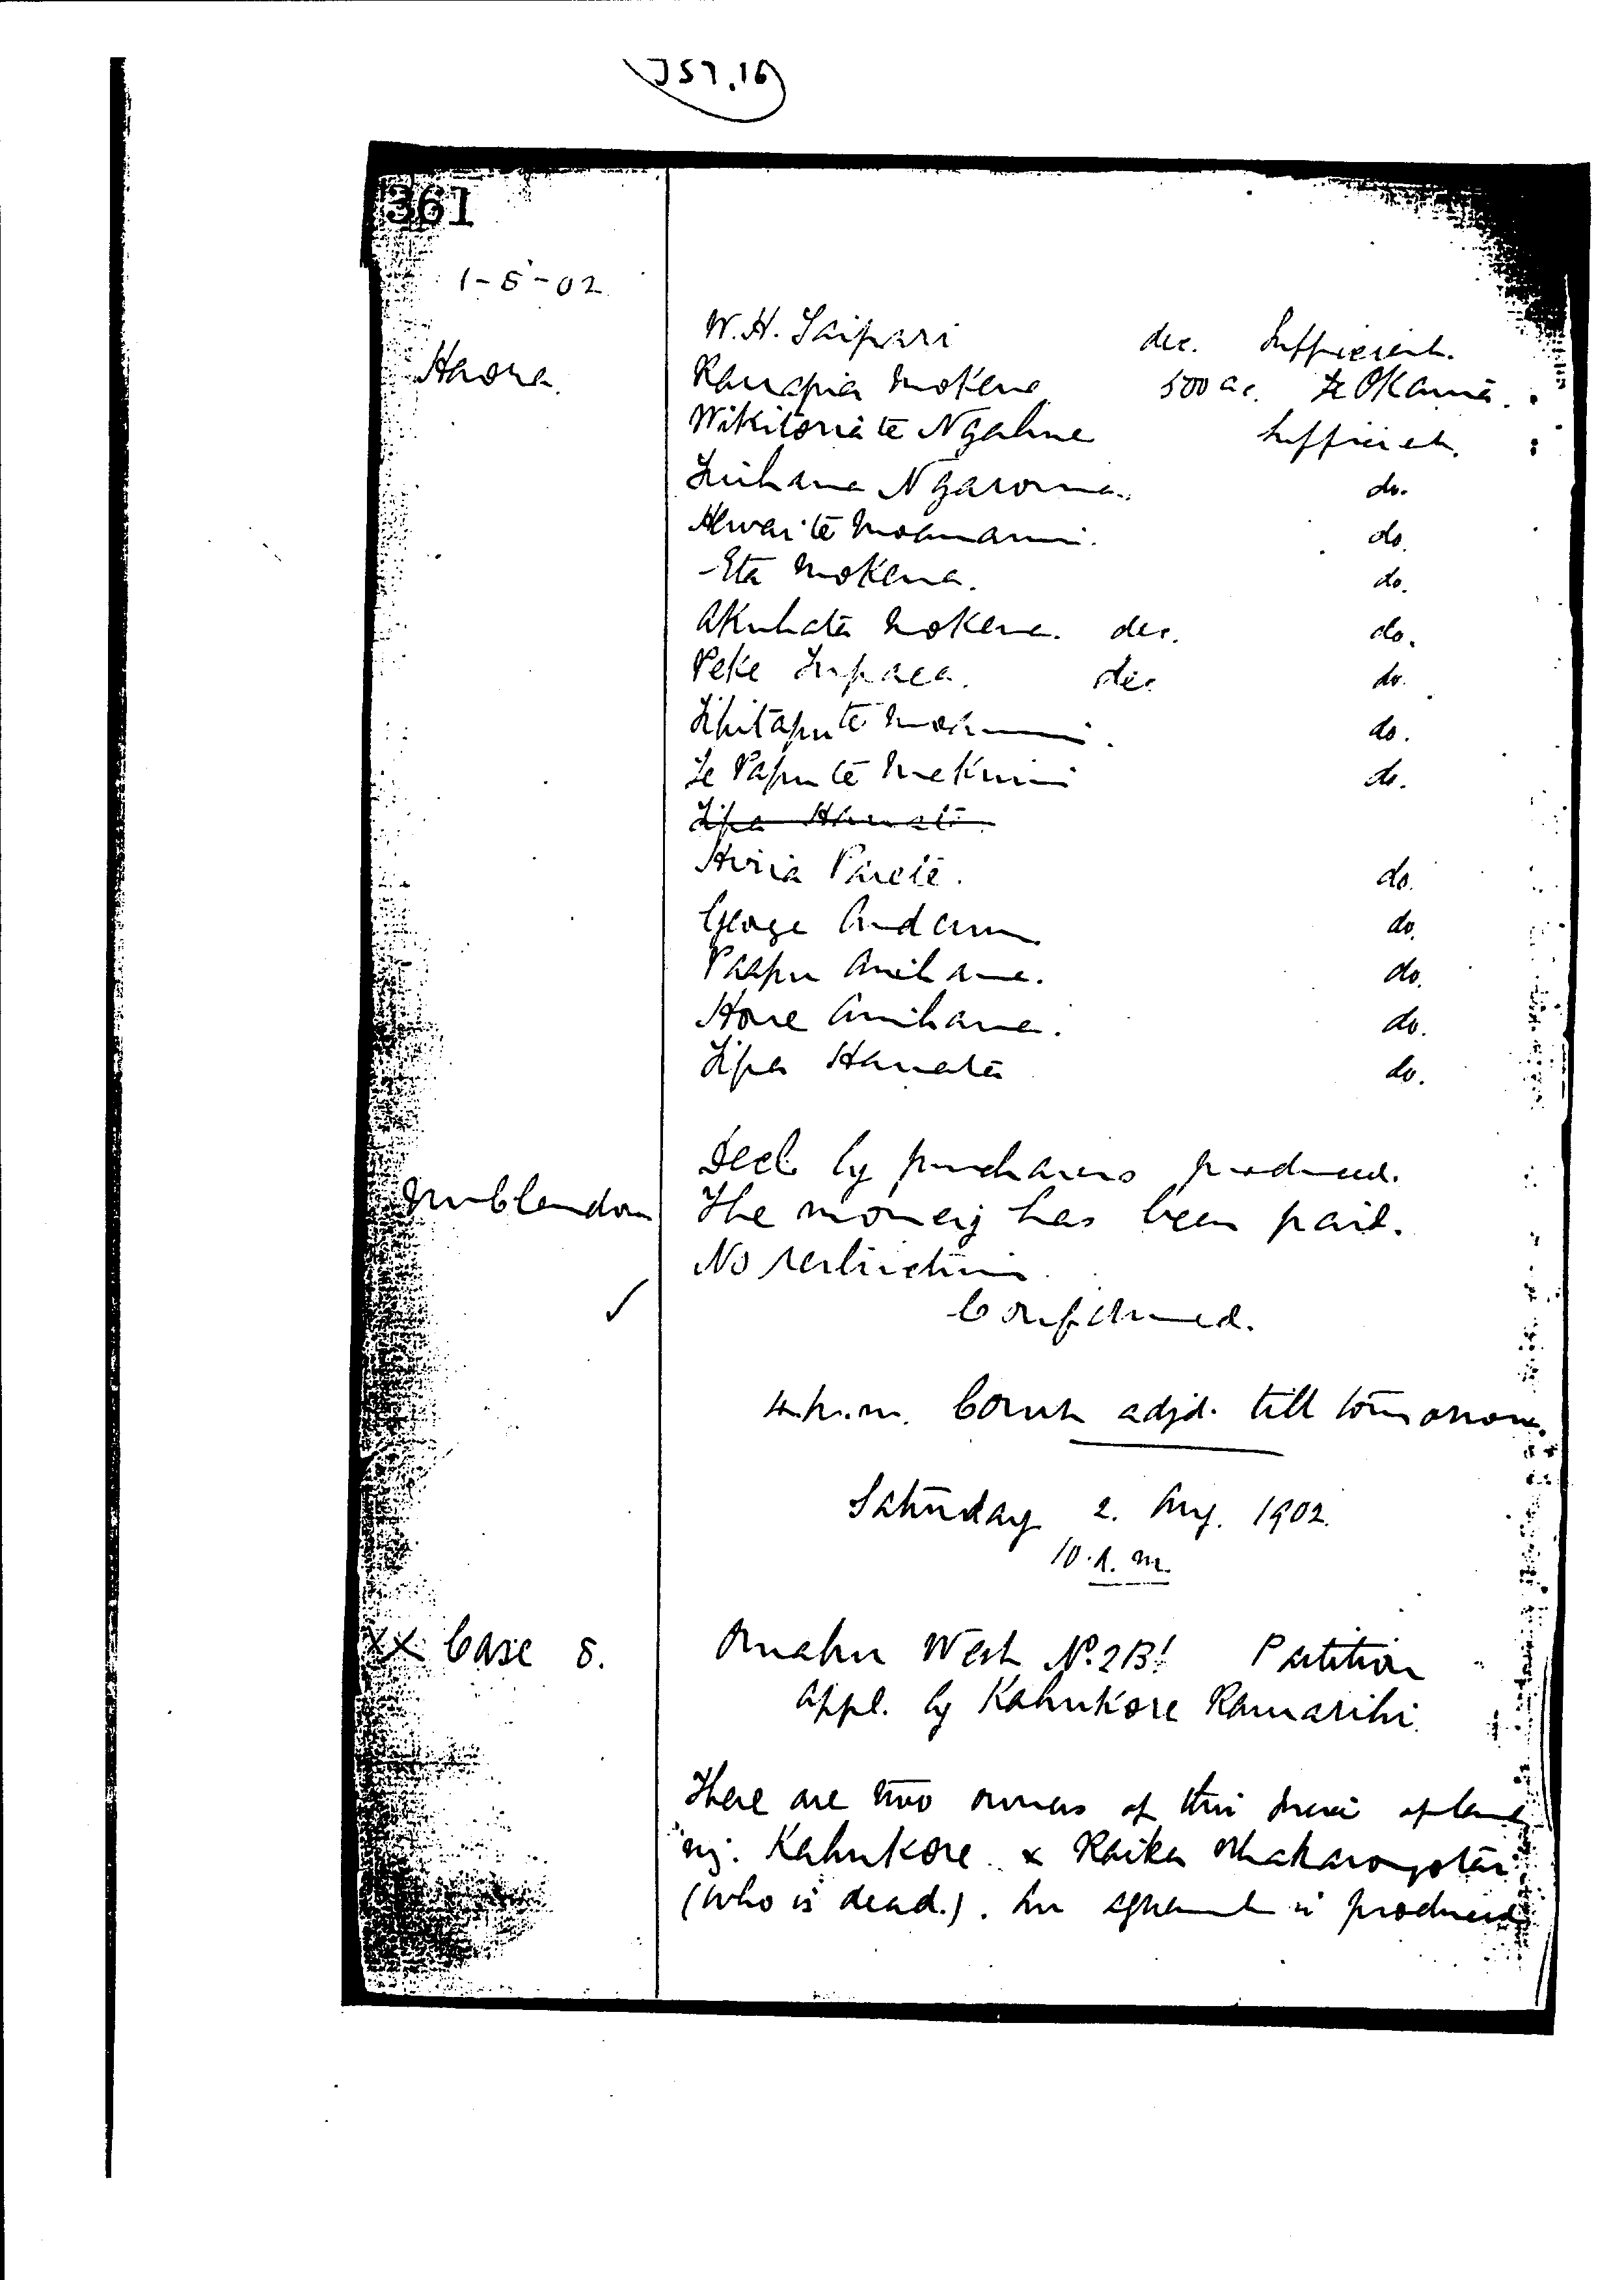 J57.16
361
1-8-02
W.H. Taipari dec. Sufficient.
Haora. Ranapia Mokena 500 ac. Te Okama.
Wikitoria te Ngahue Sufficient.
Ngaroma. do.
te do.
Eta Mokena. do.
Akuhata Mokena. dec. do.
Peke Tupaea. dec do.
do.
Te Papu te do.
Tipa Hamata
Hiria Parete. do.
George Anderson do.
Paapu Anihana. do.
Hone Anihana. do.
Tipa Hamata do.
Decl. by purchasers produced.
The money has been paid.
No restrictions.
✓ Confirmed.
4.p.m. Court adjd. till tomorrow.
Saturday 2. Aug. 1902.
10.a.m.
XX Case 8. Omahu West No. 2B1 Partition
appl. by Kahukore Ramarihi.
There are two owners of this of land
viz. Kahukore & Raika Whakarongotai
(who is dead.). An agreement is produced